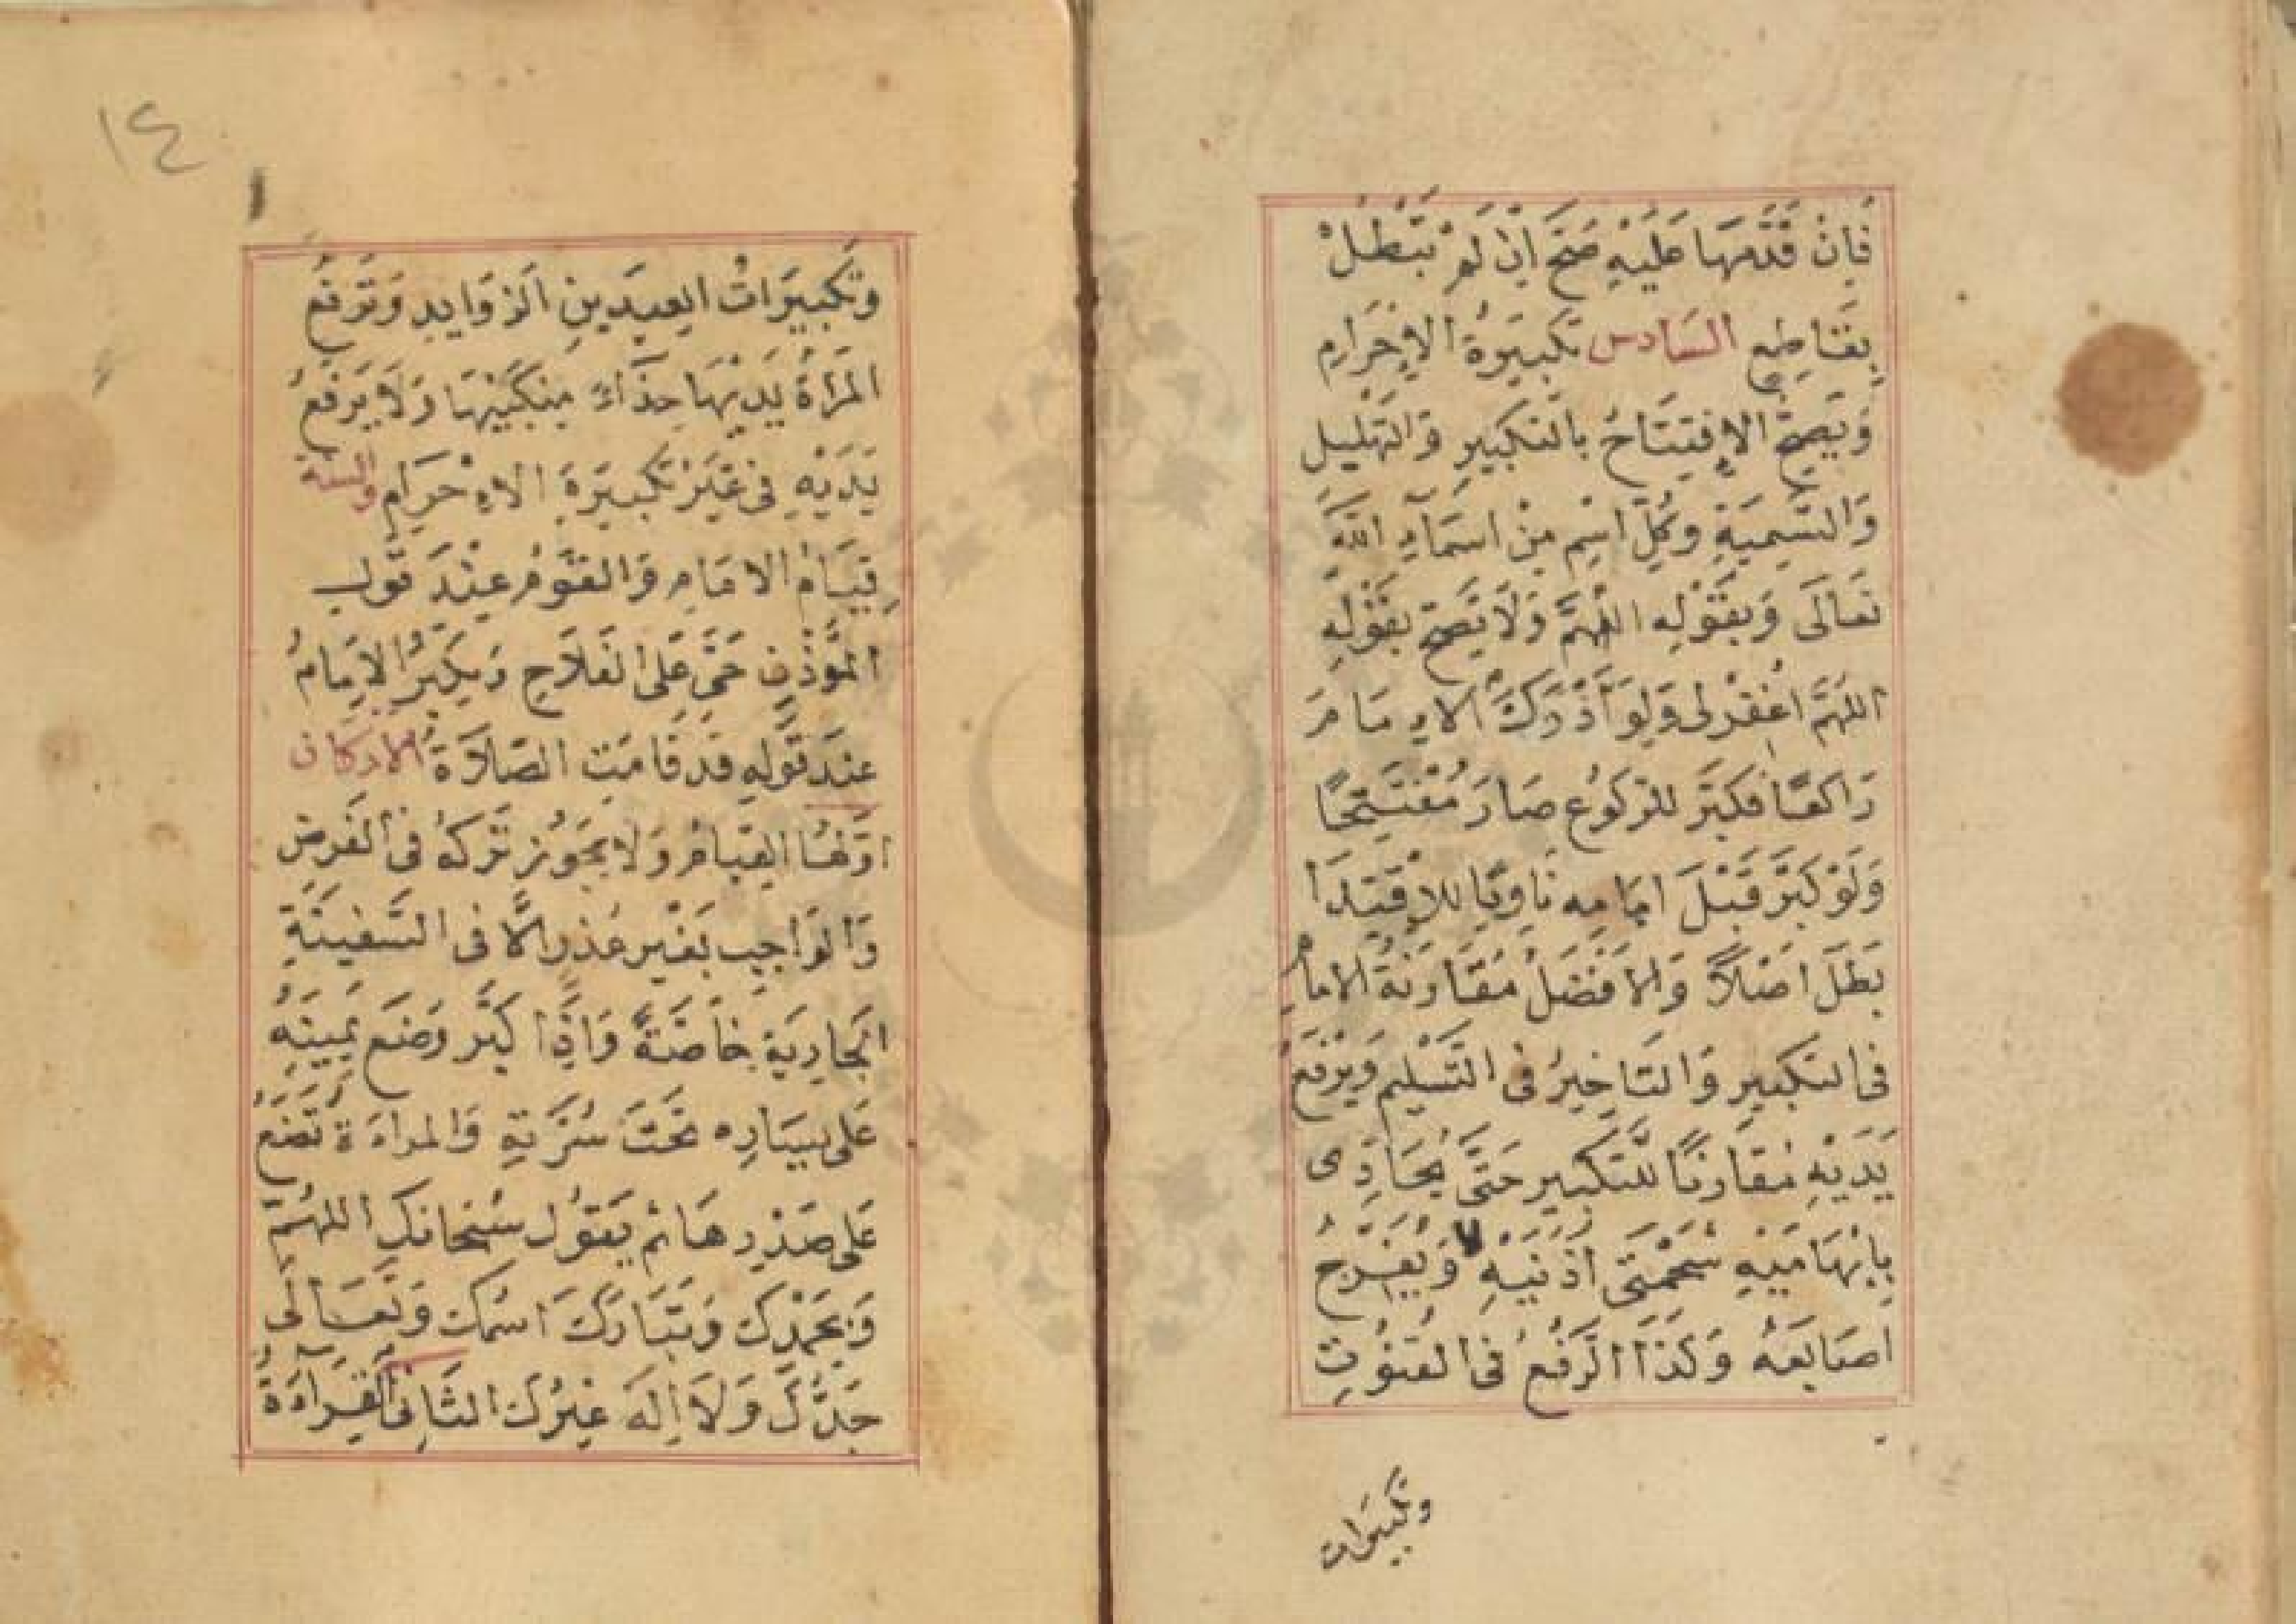 فَاِنْ قَدَّمَهَا عَلَيْهِ صَحَّ اِنْ لَمْ تَبْطُلْ
بِقَاطِعٍ السَّادس تكبِيَرةُ الاِحْرَامِ
وَيَصِحُّ الاِفْتِتَاحُ بالتكبِيرِ وَالتهْلِيلِ
وَالتسْمِيَةِ وَكُلِّ اسْمٍ مِنْ اسمَآءِ اللّهِ
تعَالَى وَبِقَوْلِهِ اللّهُمَّ وَلَا يَصِحّ بقَوْلِهِ
اللهُمَّ اغْفِرْلى وَلوَ أَدْرَكَ الاِمَامَ
رَاكعًا فكبَّرَ للرّكوُعِ صَارَ مُفْتَتِحًا
وَلَوْ كبَّرَ قَبْلَ امَامِه نَاوِيًا للاِقْتِدَا
بَطَلَ اَصْلًا وَالاَفْضَلُ مُقَارنَةُ الامامِ
فى التكبِيرِ وَالتَاخِيرُ فى التَّسْلِيم وَيَرْفَعُ
يَدَيْهِ مُقارنًا للتَّكبير حَتَّى يُحَاذِى
بِابْهَامَيْهِ شَحْمَتَى اُذُنَيْهِ وَيُفَرِّجُ
اصَابعَهُ وَكذَا الرَفْعُ فى القنوُتِ
وتكبيرات
١٤
وَتكبيرَاتُ العِيدَينِ الزوَايدِ وَتَرفعُ
المَرْاَةُ يَدَيْهَا حِذَآءَ مِنكبَيْهَا وَلَا يَرْفَعُ
يَدَيْهِ فى غَيْرِ تكبيَرةِ الاِحْرَامِ والسنة
قيَامُ الامَامِ وَالقَوْمُ عِنْدَ قول
المُؤَذِّنِ حَيَّ عَلى الفَلَاحِ وَيكبِّرُ الاِمَامُ
عِندَ قَوْلِهِ قد قَامَتِ الصَّلَاةُ الاركان
اوّلهُا القيَامُ وَلا يجَوُز تَركهُ فى الفَرضِ
وَالوَاجِبِ بغَيْرِ عُذرٍ الَّا فى السَّفينَةِ
الجاريَةِ خاصَّةً وَاذَا كبَّر وَضَعَ يمِينَهُ
عَلى يسَارِه تَحْتَ سُرَّتِهِ وَالمراءة تضَعُ
عَلى صَدْرِهَا ثم يقوُل سُبْحانك اللهُمّ
وَبِحَمْدِكَ وَتبَارَكَ اسْمكَ وَتَعَالَى
جَدُّكَ وَلَا اِلهَ غيرُكَ الثانى القِرَآءَةُ